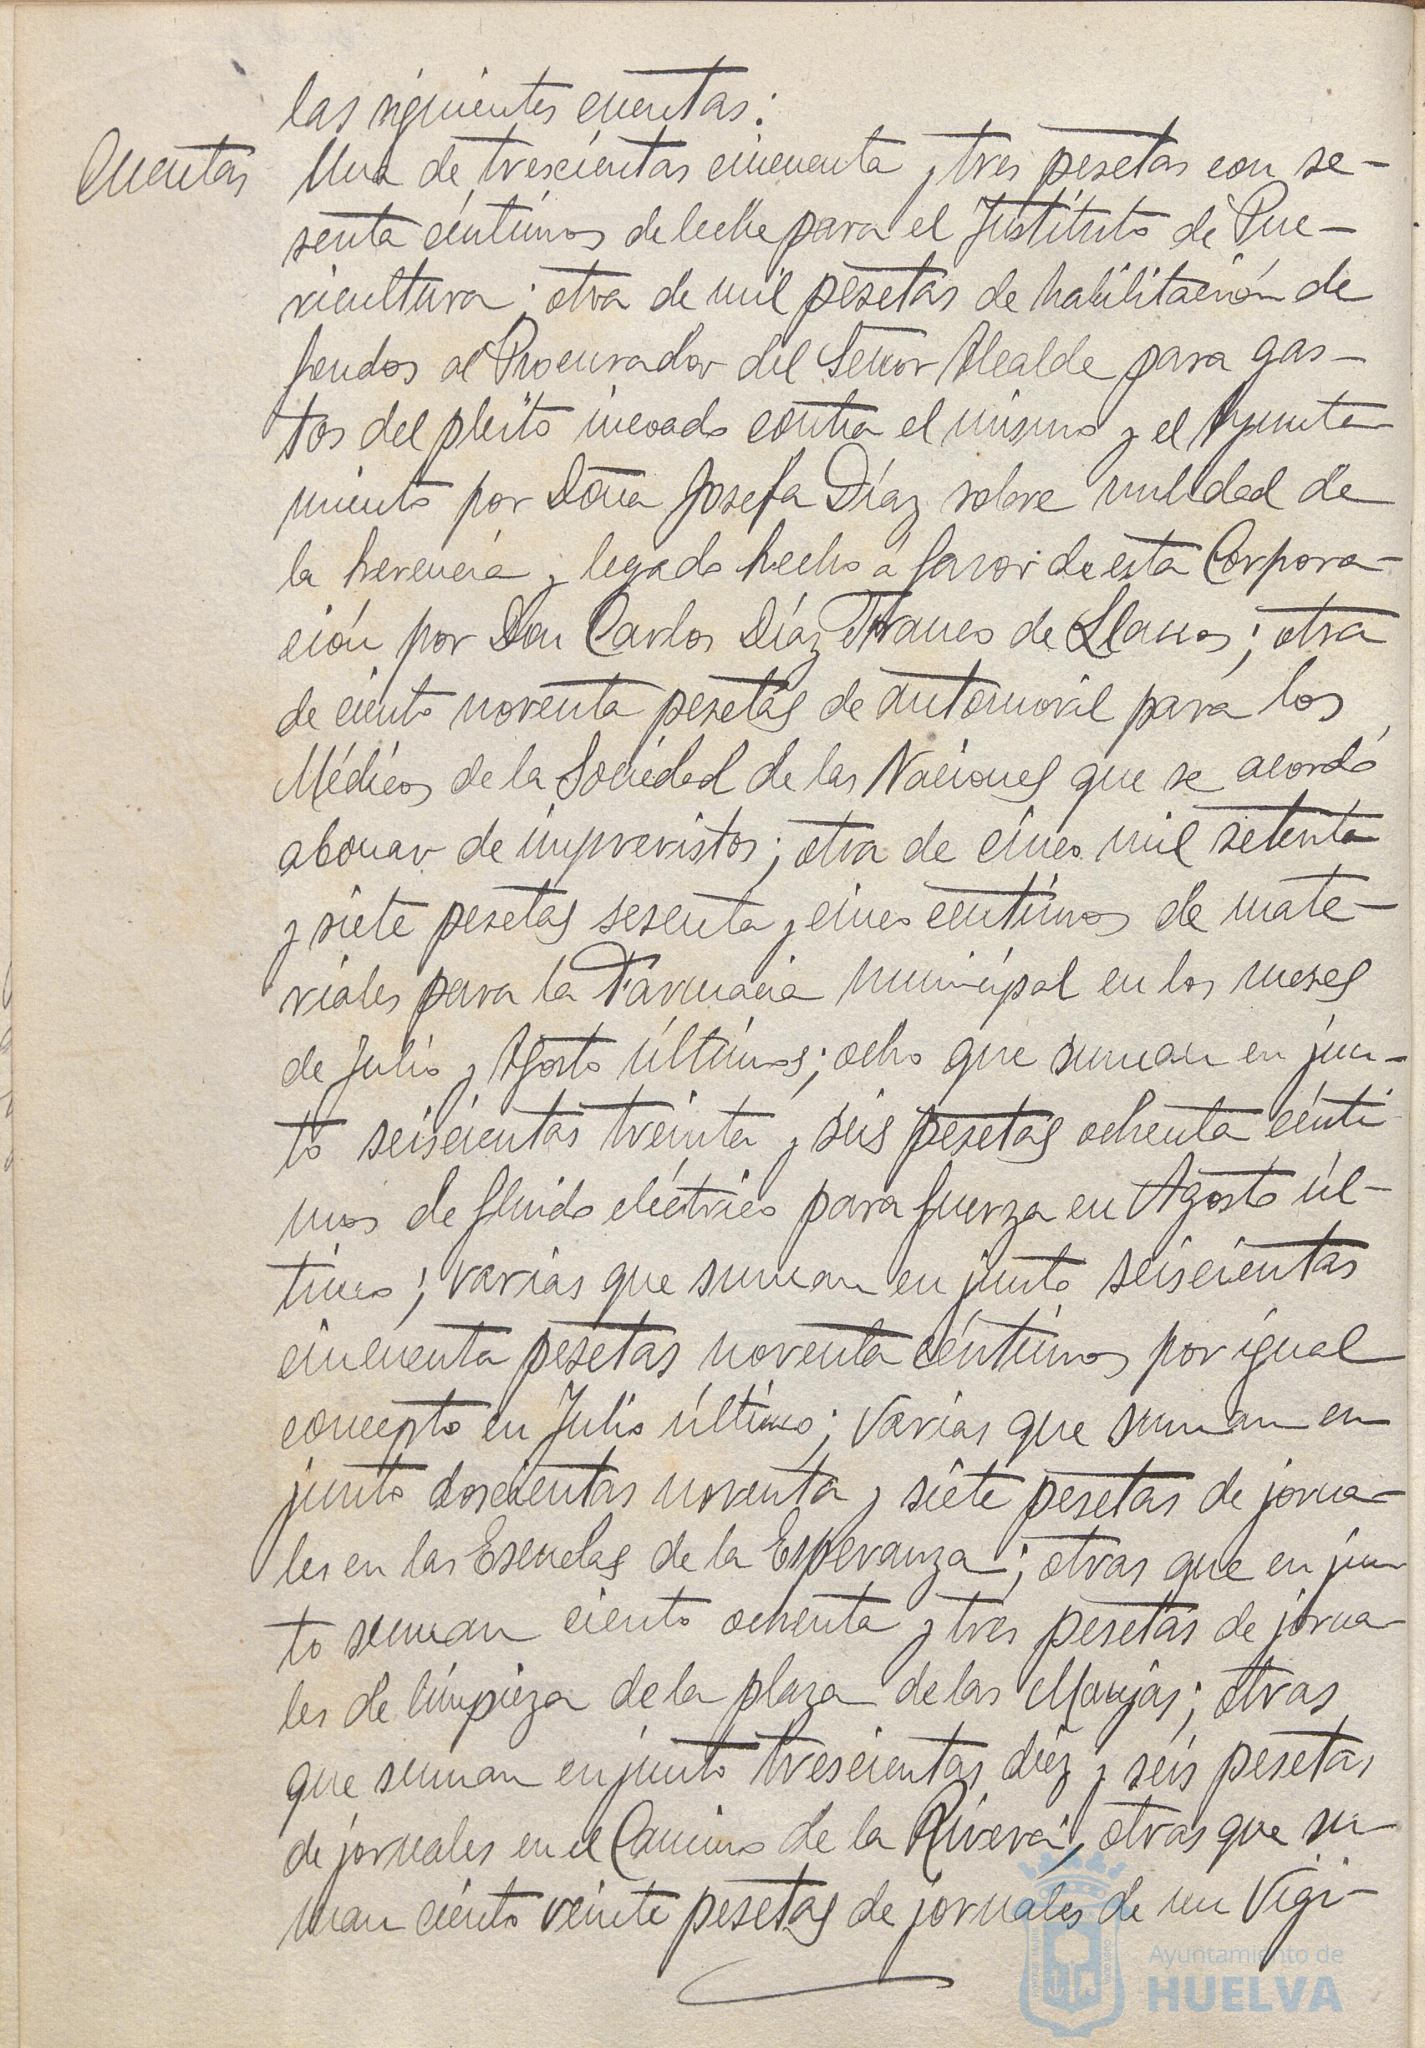 las siguientes cuentas:
Cuentas
Una de trescientas cincuenta y tres pesetas con se-
senta céntimos de leche para el Instituto de Pue-
ricultura; otra de mil pesetas de habilitación de
fondos al Procurador del Señor Alcalde para gas-
tos del pleito incoado contra el mismo y el Ayunta
miento por Doña Josefa Díaz sobre nulidad de
la herencia y legado hecho á favor de esta Corpora-
ción por Don Carlos Díaz Franco de Llanos; otra
de ciento noventa pesetas de automovil para los
Médicos de la Sociedad de las Naciones que se acordó
abonar de imprevistos; otra de cinco mil setenta
y siete pesetas sesenta y cinco centimos de mate-
riales para la Farmacia municipal en los meses
de Julio y Agosto últimos; ocho que suman en jun-
to seiscientas treinta y seis pesetas ochenta cénti
mos de fluido eléctrico para fuerza en Agosto úl-
timo; varias que suman en junto seiscientas
cincuenta pesetas noventa céntimos por igual
concepto en Julio último; varias que suman en
junto doscientas noventa y siete pesetas de jorna-
les en las Escuelas de la Esperanza; otras que en jun
to suman ciento ochenta y tres pesetas de jorna-
les de limpieza de la plaza de las Monjas; otras
que suman en junto trescientas diez y seis pesetas
de jornales en el Camino de la Rivera, otras que su-
man ciento veinte pesetas de jornales de un Vigi-
Ayuntamiento de
HUELVA